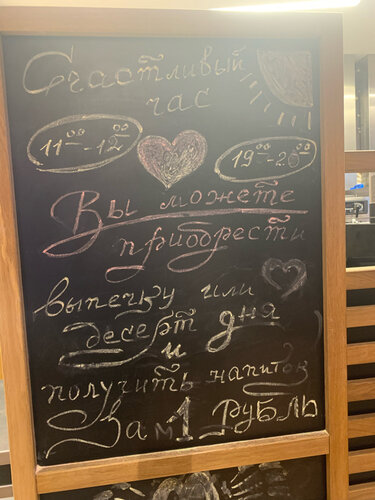 Счастливый
час
11⁰⁰-12⁰⁰ 19⁰⁰-20⁰⁰
Вы можете
приобрести
выпечку или
десерт дня
и
получить напиток
За 1 рубль